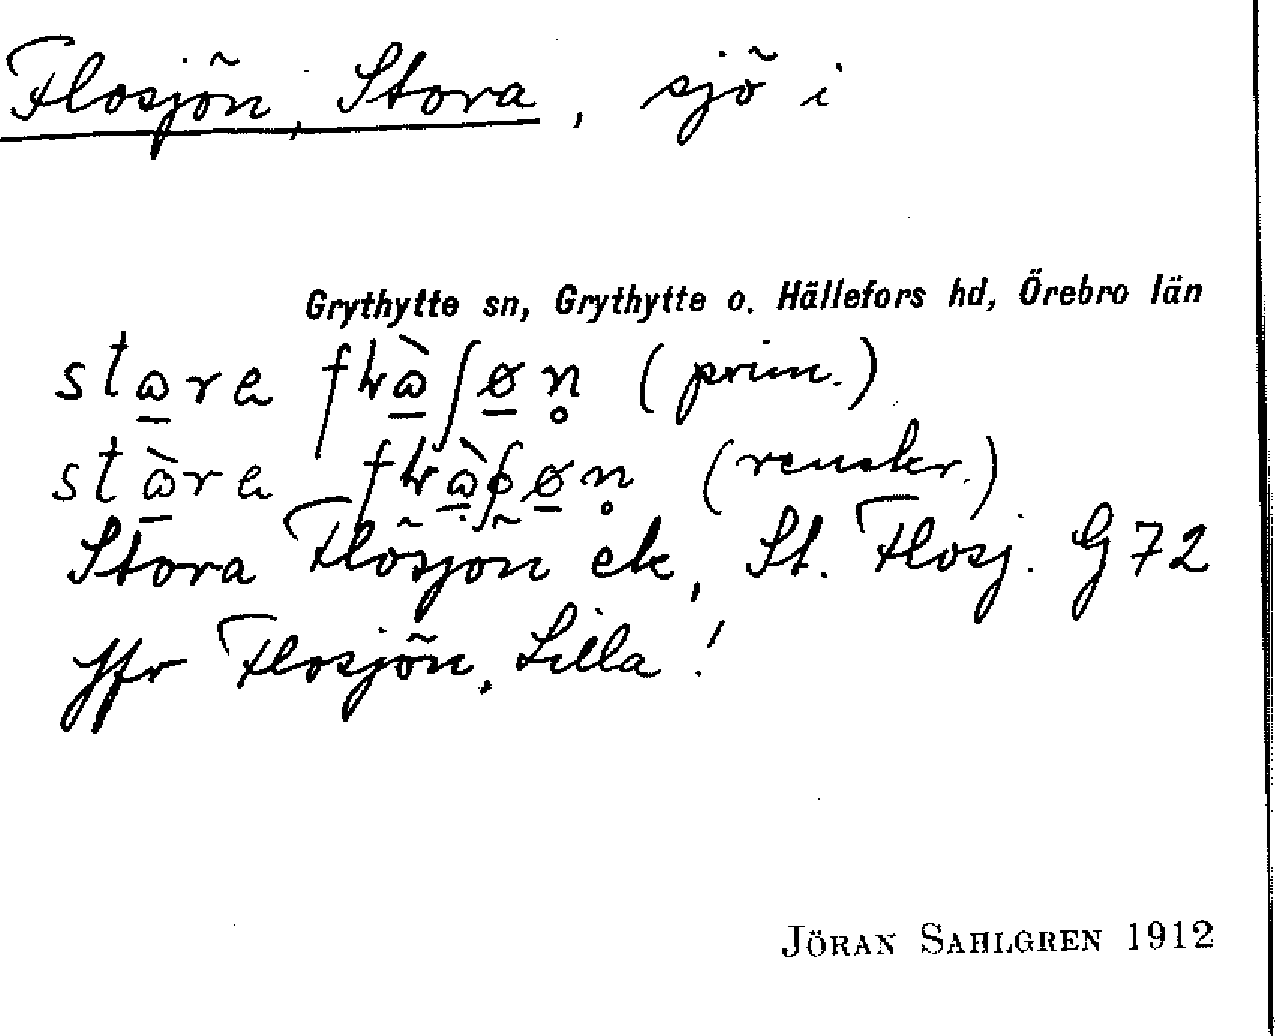 Flosjön, Stora, sjö i
Grythytte sn, Grythytte o. Hällefors hd, Örebro län
(prim.)
(renskr.)
Stora Flosjön ek, St. Flosj. G 72
Jfr Flosjön, Lilla!
JÖRAN SAHLGREN 1912